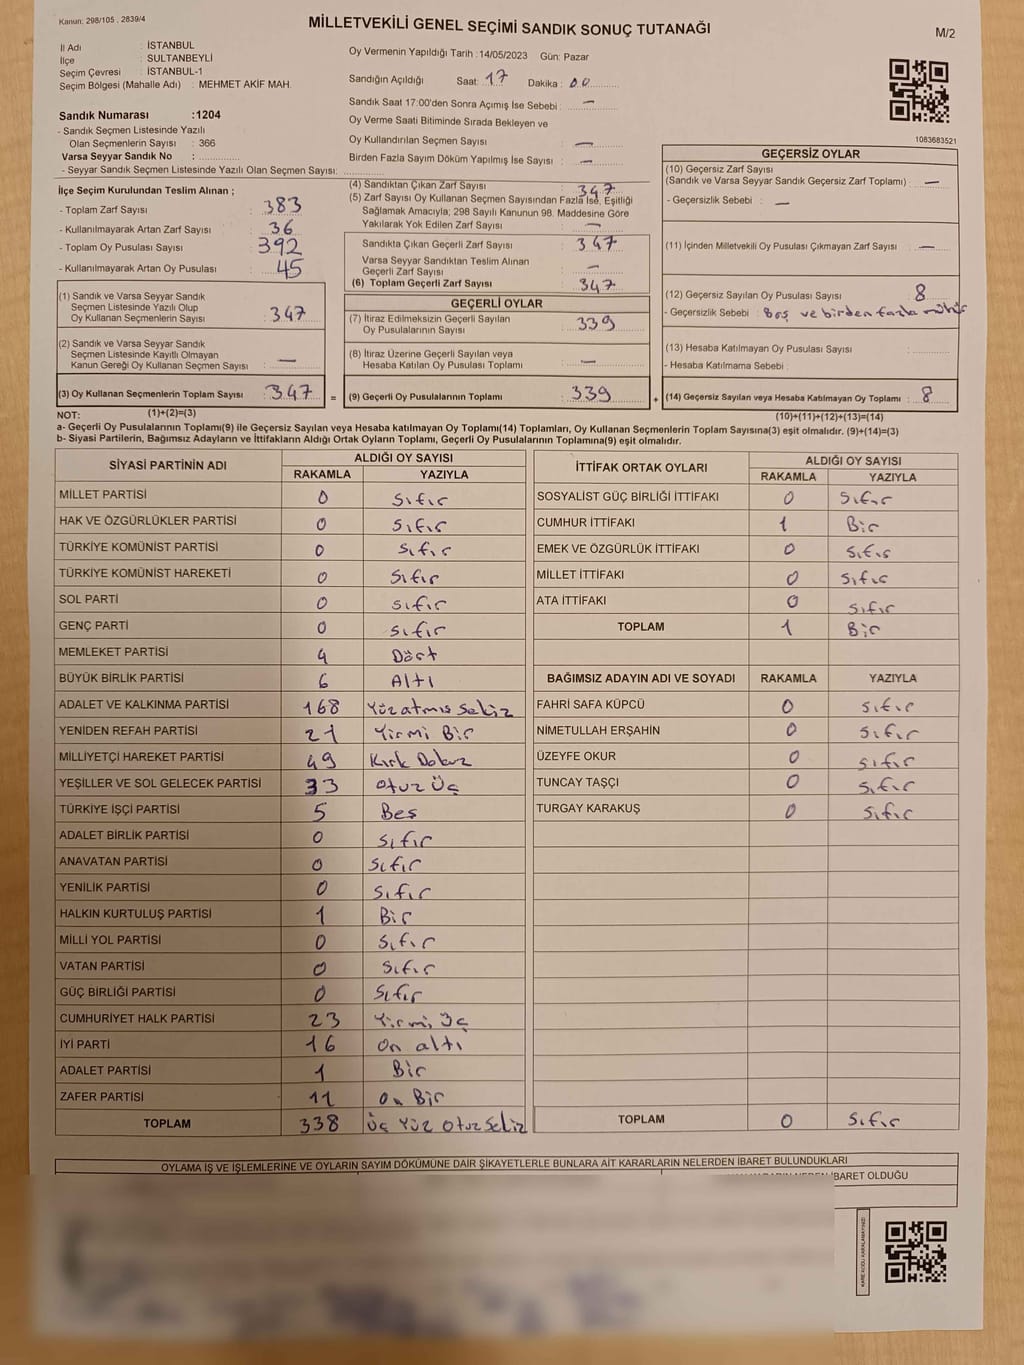 Kanun: 298/105 , 2839/4
MİLLETVEKİLİ GENEL SEÇİMİ SANDIK SONUÇ TUTANAĞI
M/2
İl Adı : İSTANBUL
İlçe : SULTANBEYLİ
Seçim Çevresi : İSTANBUL-1
Seçim Bölgesi (Mahalle Adı) : MEHMET AKİF MAH.
Oy Vermenin Yapıldığı Tarih : 14/05/2023 Gün: Pazar
Sandığın Açıldığı Saat: 17 Dakika : 00
Sandık Saat 17:00'den Sonra Açımış İse Sebebi : —
Oy Verme Saati Bitiminde Sırada Bekleyen ve
Oy Kullandırılan Seçmen Sayısı : —
Birden Fazla Sayım Döküm Yapılmış İse Sayısı : —
1083683521
Sandık Numarası :1204
- Sandık Seçmen Listesinde Yazılı
Olan Seçmenlerin Sayısı : 366
Varsa Seyyar Sandık No :
- Seyyar Sandık Seçmen Listesinde Yazılı Olan Seçmen Sayısı:
İlçe Seçim Kurulundan Teslim Alınan ;
- Toplam Zarf Sayısı : 383
- Kullanılmayarak Artan Zarf Sayısı : 36
- Toplam Oy Pusulası Sayısı : 392
- Kullanılmayarak Artan Oy Pusulası : 45
(1) Sandık ve Varsa Seyyar Sandık
Seçmen Listesinde Yazılı Olup
Oy Kullanan Seçmenlerin Sayısı : 347
(2) Sandık ve Varsa Seyyar Sandık
Seçmen Listesinde Kayıtlı Olmayan
Kanun Gereği Oy Kullanan Seçmen Sayısı : —
(3) Oy Kullanan Seçmenlerin Toplam Sayısı : 347
(1)+(2)=(3)
(4) Sandıktan Çıkan Zarf Sayısı : 347
(5) Zarf Sayısı Oy Kullanan Seçmen Sayısından Fazla İse, Eşitliği
Sağlamak Amacıyla; 298 Sayılı Kanunun 98. Maddesine Göre
Yakılarak Yok Edilen Zarf Sayısı : —
Sandıkta Çıkan Geçerli Zarf Sayısı : 347
Varsa Seyyar Sandıktan Teslim Alınan
Geçerli Zarf Sayısı : —
(6) Toplam Geçerli Zarf Sayısı : 347
GEÇERLİ OYLAR
(7) İtiraz Edilmeksizin Geçerli Sayılan
Oy Pusulalarının Sayısı : 339
(8) İtiraz Üzerine Geçerli Sayılan veya
Hesaba Katılan Oy Pusulası Toplamı : —
= (9) Geçerli Oy Pusulalarının Toplamı : 339
GEÇERSİZ OYLAR
(10) Geçersiz Zarf Sayısı
(Sandık ve Varsa Seyyar Sandık Geçersiz Zarf Toplamı) : —
- Geçersizlik Sebebi : —
(11) İçinden Milletvekili Oy Pusulası Çıkmayan Zarf Sayısı : —
(12) Geçersiz Sayılan Oy Pusulası Sayısı : 8
- Geçersizlik Sebebi : Boş ve birden fazla mühür
(13) Hesaba Katılmayan Oy Pusulası Sayısı :
- Hesaba Katılmama Sebebi :
+ (14) Geçersiz Sayılan veya Hesaba Katılmayan Oy Toplamı : 8
(10)+(11)+(12)+(13)=(14)
NOT:
a- Geçerli Oy Pusulalarının Toplamı(9) ile Geçersiz Sayılan veya Hesaba katılmayan Oy Toplamı(14) Toplamları, Oy Kullanan Seçmenlerin Toplam Sayısına(3) eşit olmalıdır. (9)+(14)=(3)
b- Siyasi Partilerin, Bağımsız Adayların ve İttifakların Aldığı Ortak Oyların Toplamı, Geçerli Oy Pusulalarının Toplamına(9) eşit olmalıdır.
SİYASİ PARTİNİN ADI ALDIĞI OY SAYISI
RAKAMLA YAZIYLA
MİLLET PARTİSİ 0 Sıfır
HAK VE ÖZGÜRLÜKLER PARTİSİ 0 Sıfır
TÜRKİYE KOMÜNİST PARTİSİ 0 Sıfır
TÜRKİYE KOMÜNİST HAREKETİ 0 Sıfır
SOL PARTİ 0 sıfır
GENÇ PARTİ 0 sıfır
MEMLEKET PARTİSİ 4 Dört
BÜYÜK BİRLİK PARTİSİ 6 Altı
ADALET VE KALKINMA PARTİSİ 168 Yüzatmış Sekiz
YENİDEN REFAH PARTİSİ 21 Yirmi Bir
MİLLİYETÇİ HAREKET PARTİSİ 49 Kırk Dokuz
YEŞİLLER VE SOL GELECEK PARTİSİ 33 Otuz Üç
TÜRKİYE İŞÇİ PARTİSİ 5 Beş
ADALET BİRLİK PARTİSİ 0 Sıfır
ANAVATAN PARTİSİ 0 Sıfır
YENİLİK PARTİSİ 0 Sıfır
HALKIN KURTULUŞ PARTİSİ 1 Bir
MİLLİ YOL PARTİSİ 0 Sıfır
VATAN PARTİSİ 0 Sıfır
GÜÇ BİRLİĞİ PARTİSİ 0 Sıfır
CUMHURİYET HALK PARTİSİ 23 Yirmi Üç
İYİ PARTİ 16 On altı
ADALET PARTİSİ 1 Bir
ZAFER PARTİSİ 11 On Bir
TOPLAM 338 Üç Yüz Otuz Sekiz
İTTİFAK ORTAK OYLARI ALDIĞI OY SAYISI
RAKAMLA YAZIYLA
SOSYALİST GÜÇ BİRLİĞİ İTTİFAKI 0 Sıfır
CUMHUR İTTİFAKI 1 Bir
EMEK VE ÖZGÜRLÜK İTTİFAKI 0 Sıfır
MİLLET İTTİFAKI 0 Sıfır
ATA İTTİFAKI 0 Sıfır
TOPLAM 1 Bir
BAĞIMSIZ ADAYIN ADI VE SOYADI RAKAMLA YAZIYLA
FAHRİ SAFA KÜPCÜ 0 Sıfır
NİMETULLAH ERŞAHİN 0 Sıfır
ÜZEYFE OKUR 0 Sıfır
TUNCAY TAŞÇI 0 Sıfır
TURGAY KARAKUŞ 0 Sıfır
TOPLAM 0 Sıfır
OYLAMA İŞ VE İŞLEMLERİNE VE OYLARIN SAYIM DÖKÜMÜNE DAİR ŞİKAYETLERLE BUNLARA AİT KARARLARIN NELERDEN İBARET BULUNDUKLARI
İBARET OLDUĞU
KARE KODU KARALAMAYINIZ!